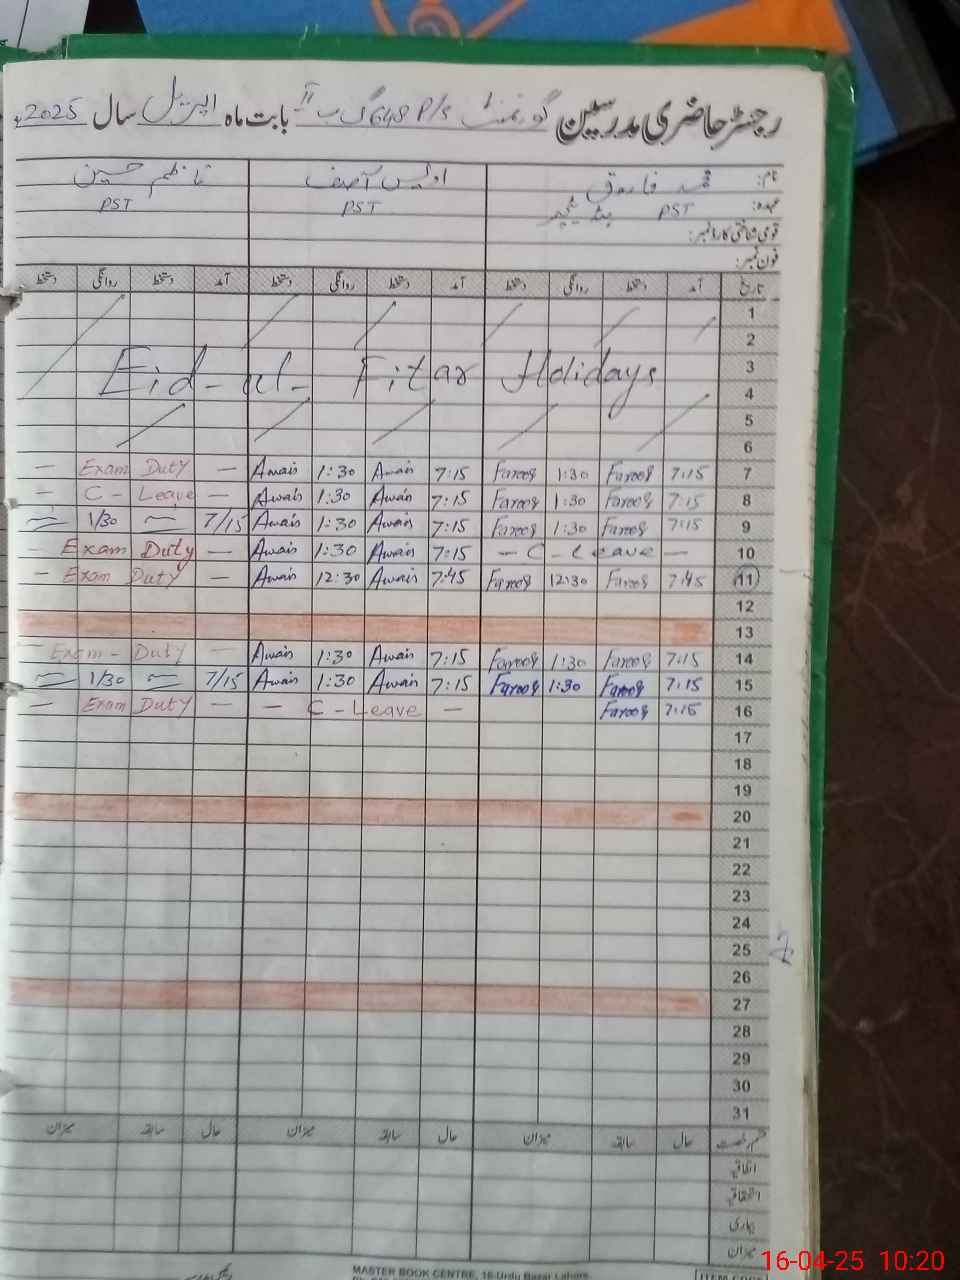 رجسٹر حاضری مدرسین گورنمنٹ P/s 648 گ ب II بابت ماہ اپریل سال 2025ء
نام: محمد فاروق اویس آصف ناظم حسین
عہدہ: PST ہیڈ ٹیچر PST PST
قومی شناختی کارڈ نمبر:
فون نمبر:
تاریخ آمد دستخط روانگی دستخط آمد دستخط روانگی دستخط آمد دستخط روانگی دستخط
1
2
Eid-ul-Fitar Holidays 3
4
5
6
— Exam Duty — Awais 1:30 Awais 7:15 Farooq 1:30 Farooq 7:15 7
— C-Leave — Awais 1:30 Awais 7:15 Farooq 1:30 Farooq 7:15 8
1/30 7/15 Awais 1:30 Awais 7:15 Farooq 1:30 Farooq 7:15 9
— Exam Duty — Awais 1:30 Awais 7:15 — C-Leave — 10
— Exam Duty — Awais 12:30 Awais 7:45 Farooq 12:30 Farooq 7:45 11
12
13
Exam - Duty — Awais 1:30 Awais 7:15 Farooq 1:30 Farooq 7:15 14
1/30 7/15 Awais 1:30 Awais 7:15 Farooq 1:30 Farooq 7:15 15
— Exam Duty — — C-Leave — Farooq 7:15 16
17
18
19
20
21
22
23
24
25
26
27
28
29
30
31
قسم رخصت حال سابقہ میزان حال سابقہ میزان حال سابقہ میزان
اتفاقیہ
استحقاقیہ
بیماری
میزان
MASTER BOOK CENTRE, 16-Urdu Bazar Lahore.
ITEM CODE
16-04-25 10:20